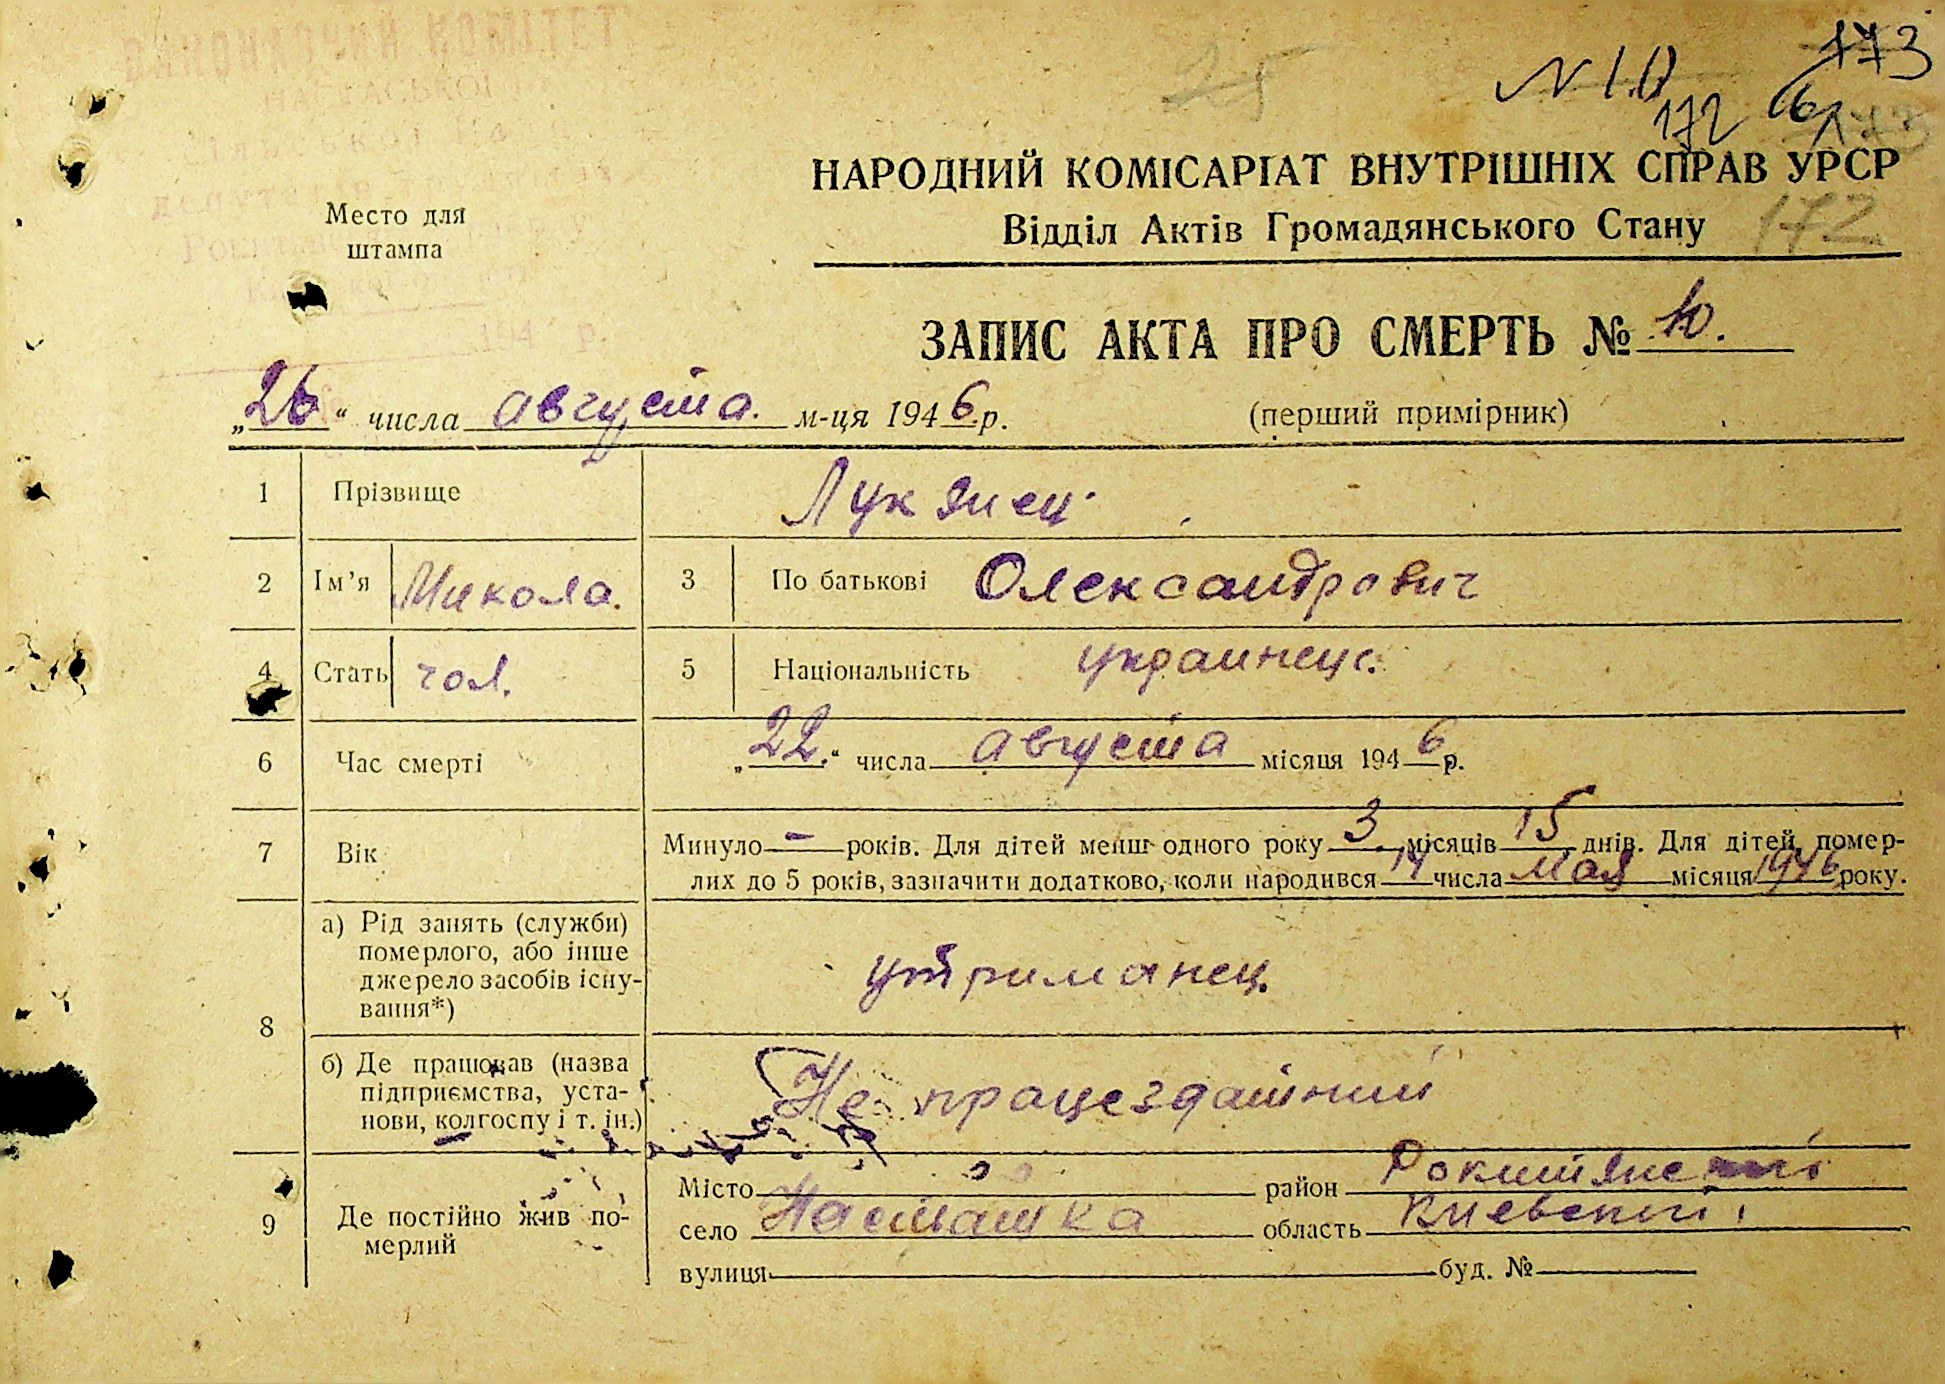 ВИКОНАВЧИЙ КОМІТЕТ
25
N 10
173
172
61
173
НАРОДНИЙ КОМІСАРІАТ ВНУТРІШНІХ СПРАВ УРСР
Відділ Актів Громадянського Стану
172
Место для
штампа
194 р.
ЗАПИС АКТА ПРО СМЕРТЬ № 10.
„26“ числа августа. м-ця 1946 р.
(перший примірник)
1 Прізвище Лукянец
2 Ім’я Микола. 3 По батькові Олександрович
4 Стать чол. 5 Національність украинец.
6 Час смерті „22.“ числа августа місяця 1946 р.
7 Вік Минуло – років. Для дітей менш одного року 3 місяців 15 днів. Для дітей, помер-
лих до 5 років, зазначити додатково, коли народився 14 числа мая місяця 1946 року.
8 а) Рід занять (служби)
померлого, або інше
джерело засобів існу-
вання*)
утриманец.
б) Де працював (назва
підприємства, уста-
нови, колгоспу і т. ін.)
Не працездатний
9 Де постійно жив по-
мерлий
Місто район
село Насташка область Киевский
вулиця буд. №